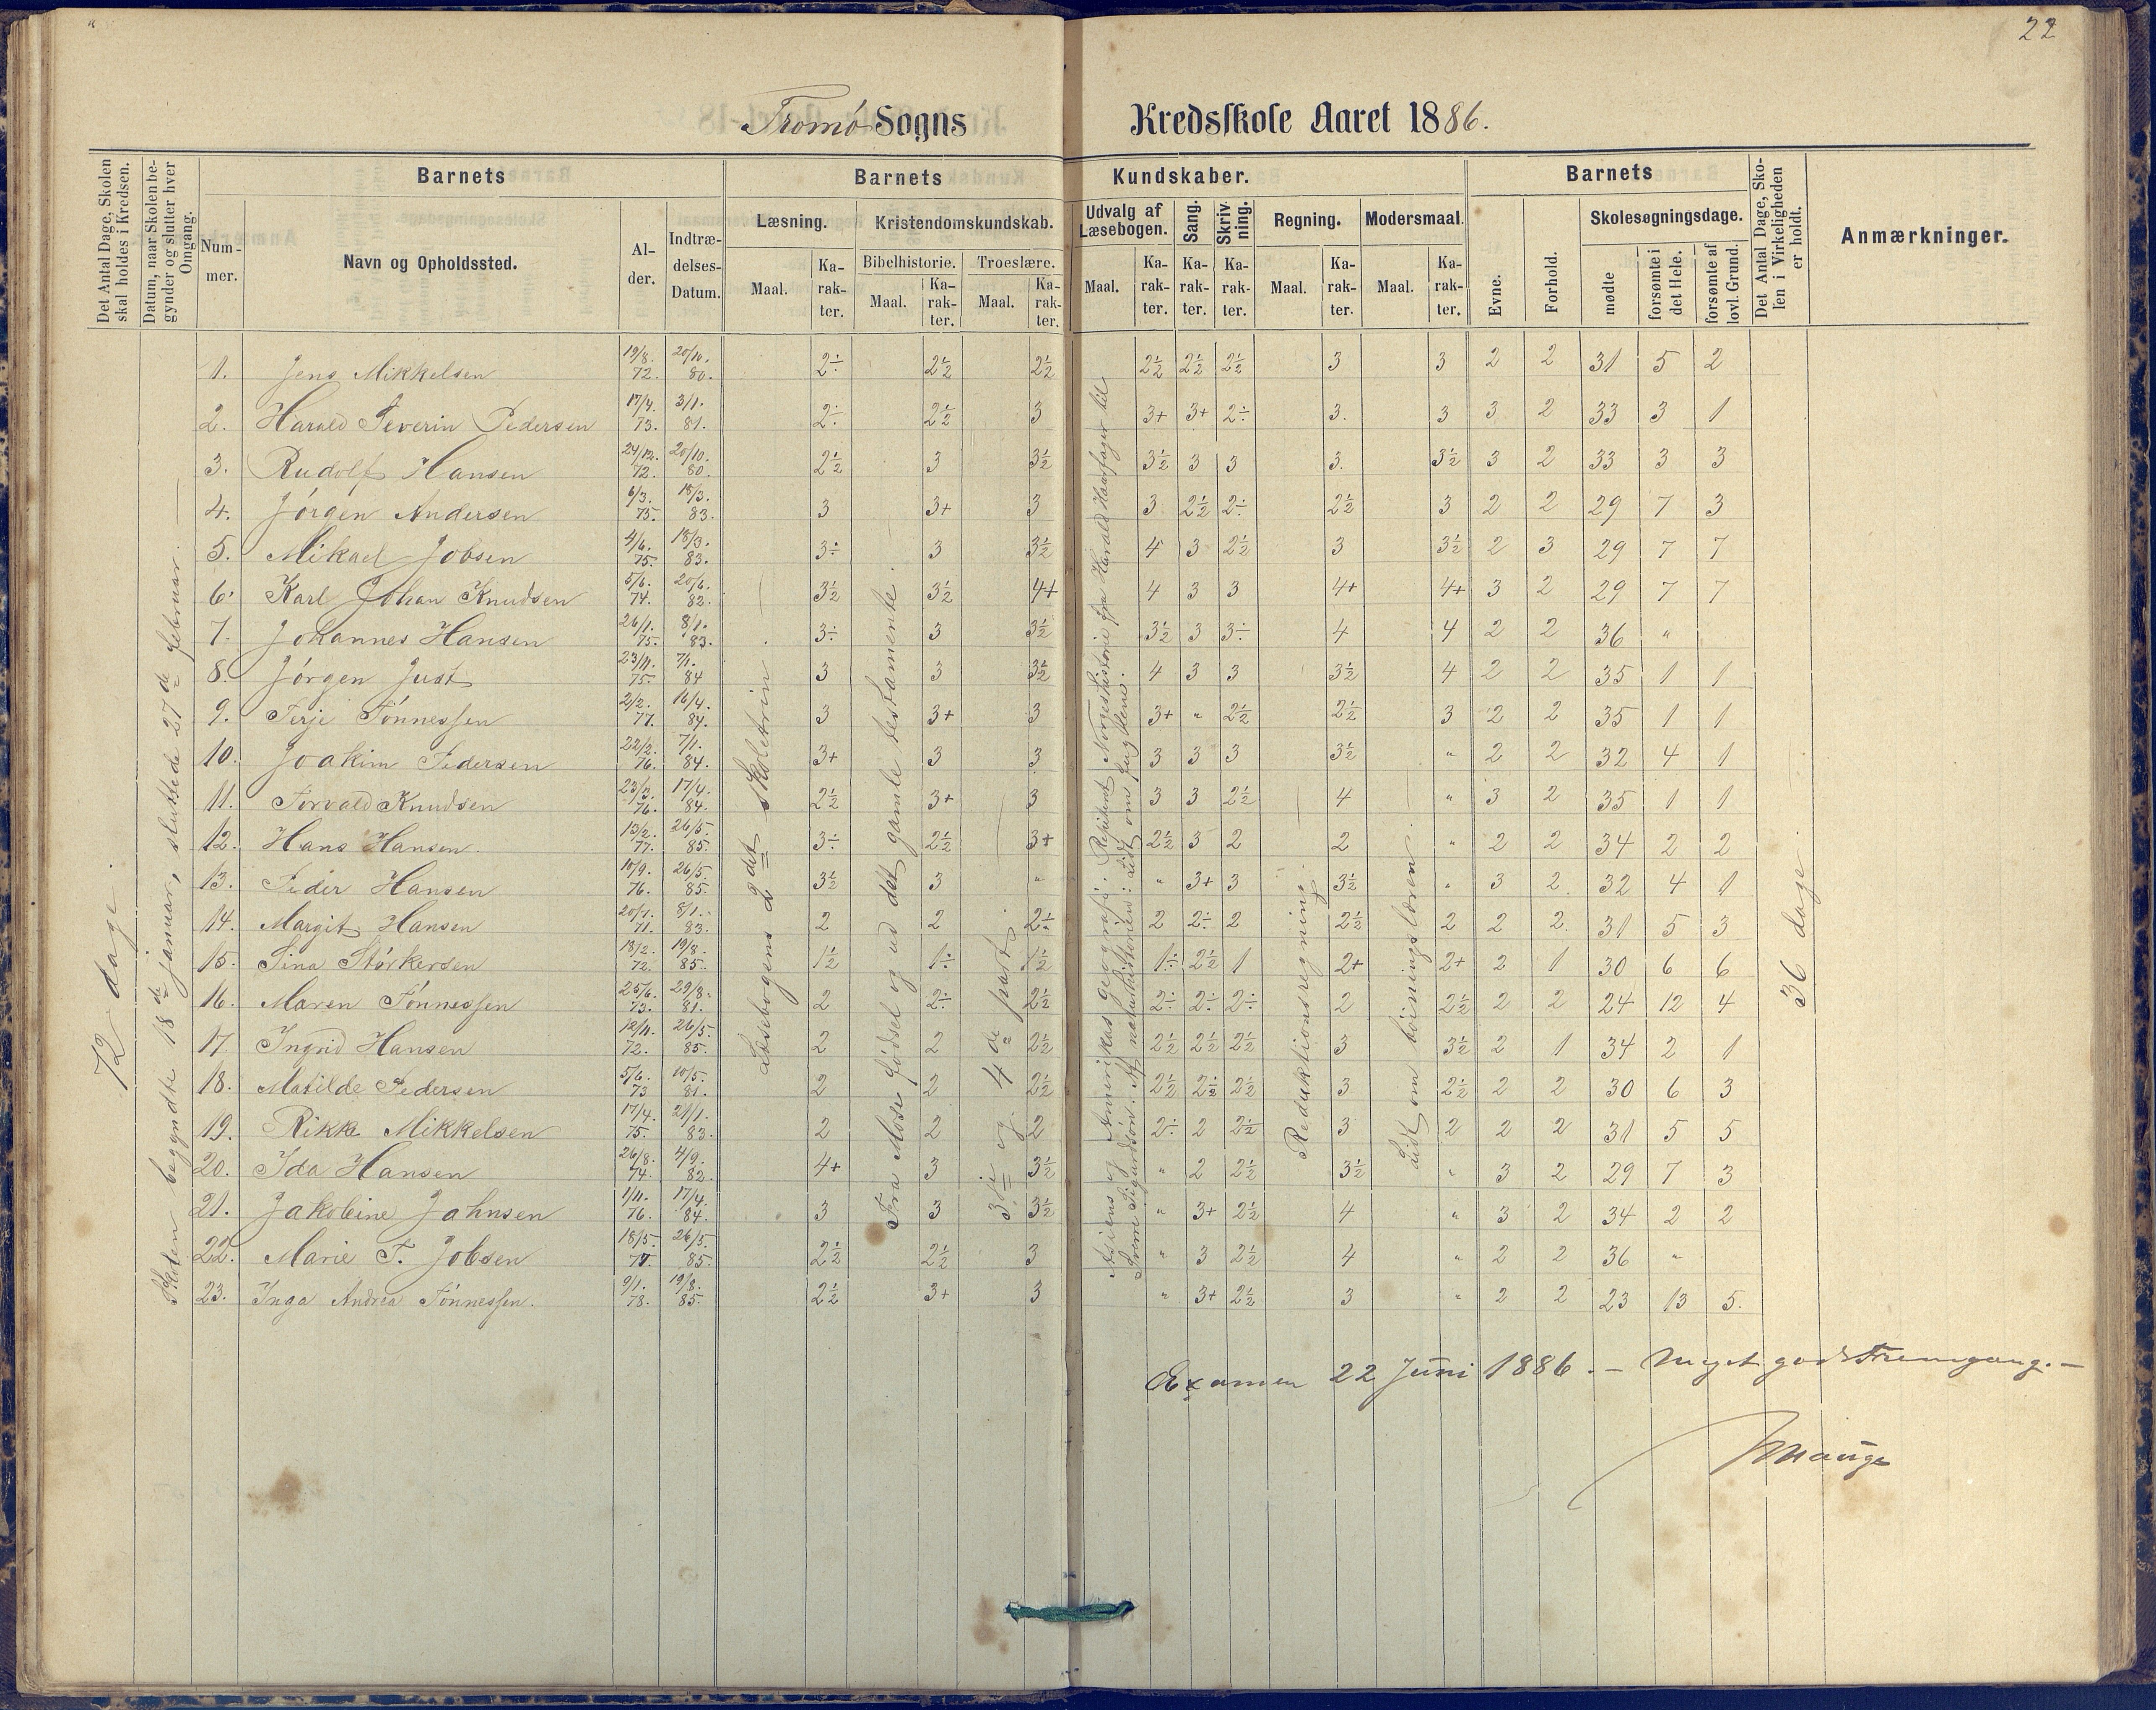 22
Tromø Sogns Kredsskole Aaret 1886.
Det Antal Dage, Skolen skal holdes i Kredsen.
Datum, naar Skolen begynder og slutter hver Omgang.
Barnets
Nummer.
Navn og Opholdssted.
Alder.
Indtrædelses-Datum.
Barnets Kundskaber.
Læsning.
Maal. Karakter.
Kristendomskundskab.
Bibelhistorie. Troeslære.
Maal. Karakter. Maal. Karakter.
Udvalg af Læsebogen.
Maal. Karakter.
Sang. Karakter.
Skrivning. Karakter.
Regning.
Maal. Karakter.
Modersmaal.
Maal. Karakter.
Barnets
Evne. Forhold.
Skolesøgningsdage.
mødte forsømte i det Hele. forsømte af lovl. Grund.
Det Antal Dage, Skolen i Virkeligheden er holdt.
Anmærkninger.
72 dage.
Skolen begyndte 18de januar, sluttede 27de februar.
Læsebogens 2det skoletrin
Fra Mose fødsel og ud det gamle testamente.
3die og 4de part.
Asiens og Amerikas geografi. Repetert Norgeshistorie fra Harald Haarfager til
Sverre Sigurdson. Af naturhistorien: Lidt om fuglene.
Reduktionsregning.
Lidt om bøiningslæren.
36 dage.
1. Jens Mikkelsen 19/8. 72. 20/10. 80. 2÷ 2½ 2½ 2½ 2½ 2½ 3 3 2 2 31 5 2
2. Harald Severin Pedersen 17/4. 73. 3/1. 81. 2÷ 2½ 3 3+ 3+ 2÷ 3. 3 3 2 33 3 1
3. Rudolf Hansen 24/12. 72. 20/10. 80 2½ 3 3½ 3½ 3 3 3. 3½ 3 2 33 3 3
4. Jørgen Andersen 6/3. 75. 18/3. 83. 3 3+ 3 3 2½ 2÷ 2½ 3 2 2 29 7 3
5. Mikael Jobsen 4/6. 75. 18/3. 83. 3÷ 3 3½ 4 3 2½ 3 3½ 2 3 29 7 7
6. Karl Johan Knudsen 5/6. 74. 20/6. 82. 3½ 3½ 4+ 4 3 3 4+ 4+ 3 2 29 7 7
7. Johannes Hansen 26/1. 75. 8/1. 83. 3÷ 3 3½ 3½ 3 3÷ 4 4 2 2 36 "
8. Jørgen Just 23/11. 75. 7/1. 84 3 3 3½ 4 3 3 3½ 4 2 2 35 1 1
9. Terje Tønnessen 2/2. 77. 16/4. 84. 3 3+ 3 3+ " 2½ 2½ 3 2 2 35 1 1
10. Joakim Pedersen 22/2. 76. 7/1. 84. 3+ 3 3 3 3 3 3½ " 2 2 32 4 1
11. Torvald Knudsen 23/3. 76. 17/4. 84. 2½ 3+ 3 3 3 2½ 4 " 3 2 35 1 1
12. Hans Hansen. 13/2. 77. 26/5. 85. 3÷ 2½ 3+ 2½ 3 2 2 " 2 2 34 2 2
13. Peder Hansen 10/9. 76. 26/5. 85. 3½ 3 " " 3+ 3 3½ " 3 2. 32 4 1
14. Margit Hansen 20/7. 71. 8/1. 83. 2 2 2÷ 2 2÷ 2 2½ 2 2 2. 31 5 3
15. Sina Størkersen 18/2. 72. 19/8. 85. 1½ 1÷ 1½ 1÷ 2½ 1 2+ 2+ 2 1 30 6 6
16. Maren Tønnessen 25/6. 73. 29/8. 81. 2 2÷ 2½ 2÷ 2÷ 2÷ 2 2½ 2 2 24 12 4
17. Ingrid Hansen 12/11. 72. 26/5. 85. 2 2 2½ 2½ 2½ 2½ 3 3½ 2 1 34 2 1
18. Matilde Pedersen 5/6. 73 10/5. 81. 2 2 2½ 2½ 2½ 2½ 3 2½ 2 2 30 6 3
19. Rikke Mikkelsen 17/4. 75. 21/1. 83. 2 2 2 2÷ 2 2½ 3 2 2 2 31 5 5
20. Ida Hansen 26/8. 74. 4/9. 82. 4+ 3 3½ " 2 2½ 3½ " 3 2 29 7 3
21. Jakobine Jahnsen 1/11. 76. 17/4. 84. 3 3 3½ " 3+ 2½ 4 " 3 2 34 2 2
22. Marie T. Jobsen 18/5. 26/5. 85. 2½ 2½ 3 " 3 2½ 4 " 2 2 36 "
23. Inga Andrea Tønnessen. 9/1. 78. 19/8. 85. 2½ 3+ 3 " 3+ 2½ 3 " 2 2 23 13 5.
Examen 22 Juni 1886. — Meget god Fremgang. —
Hauge